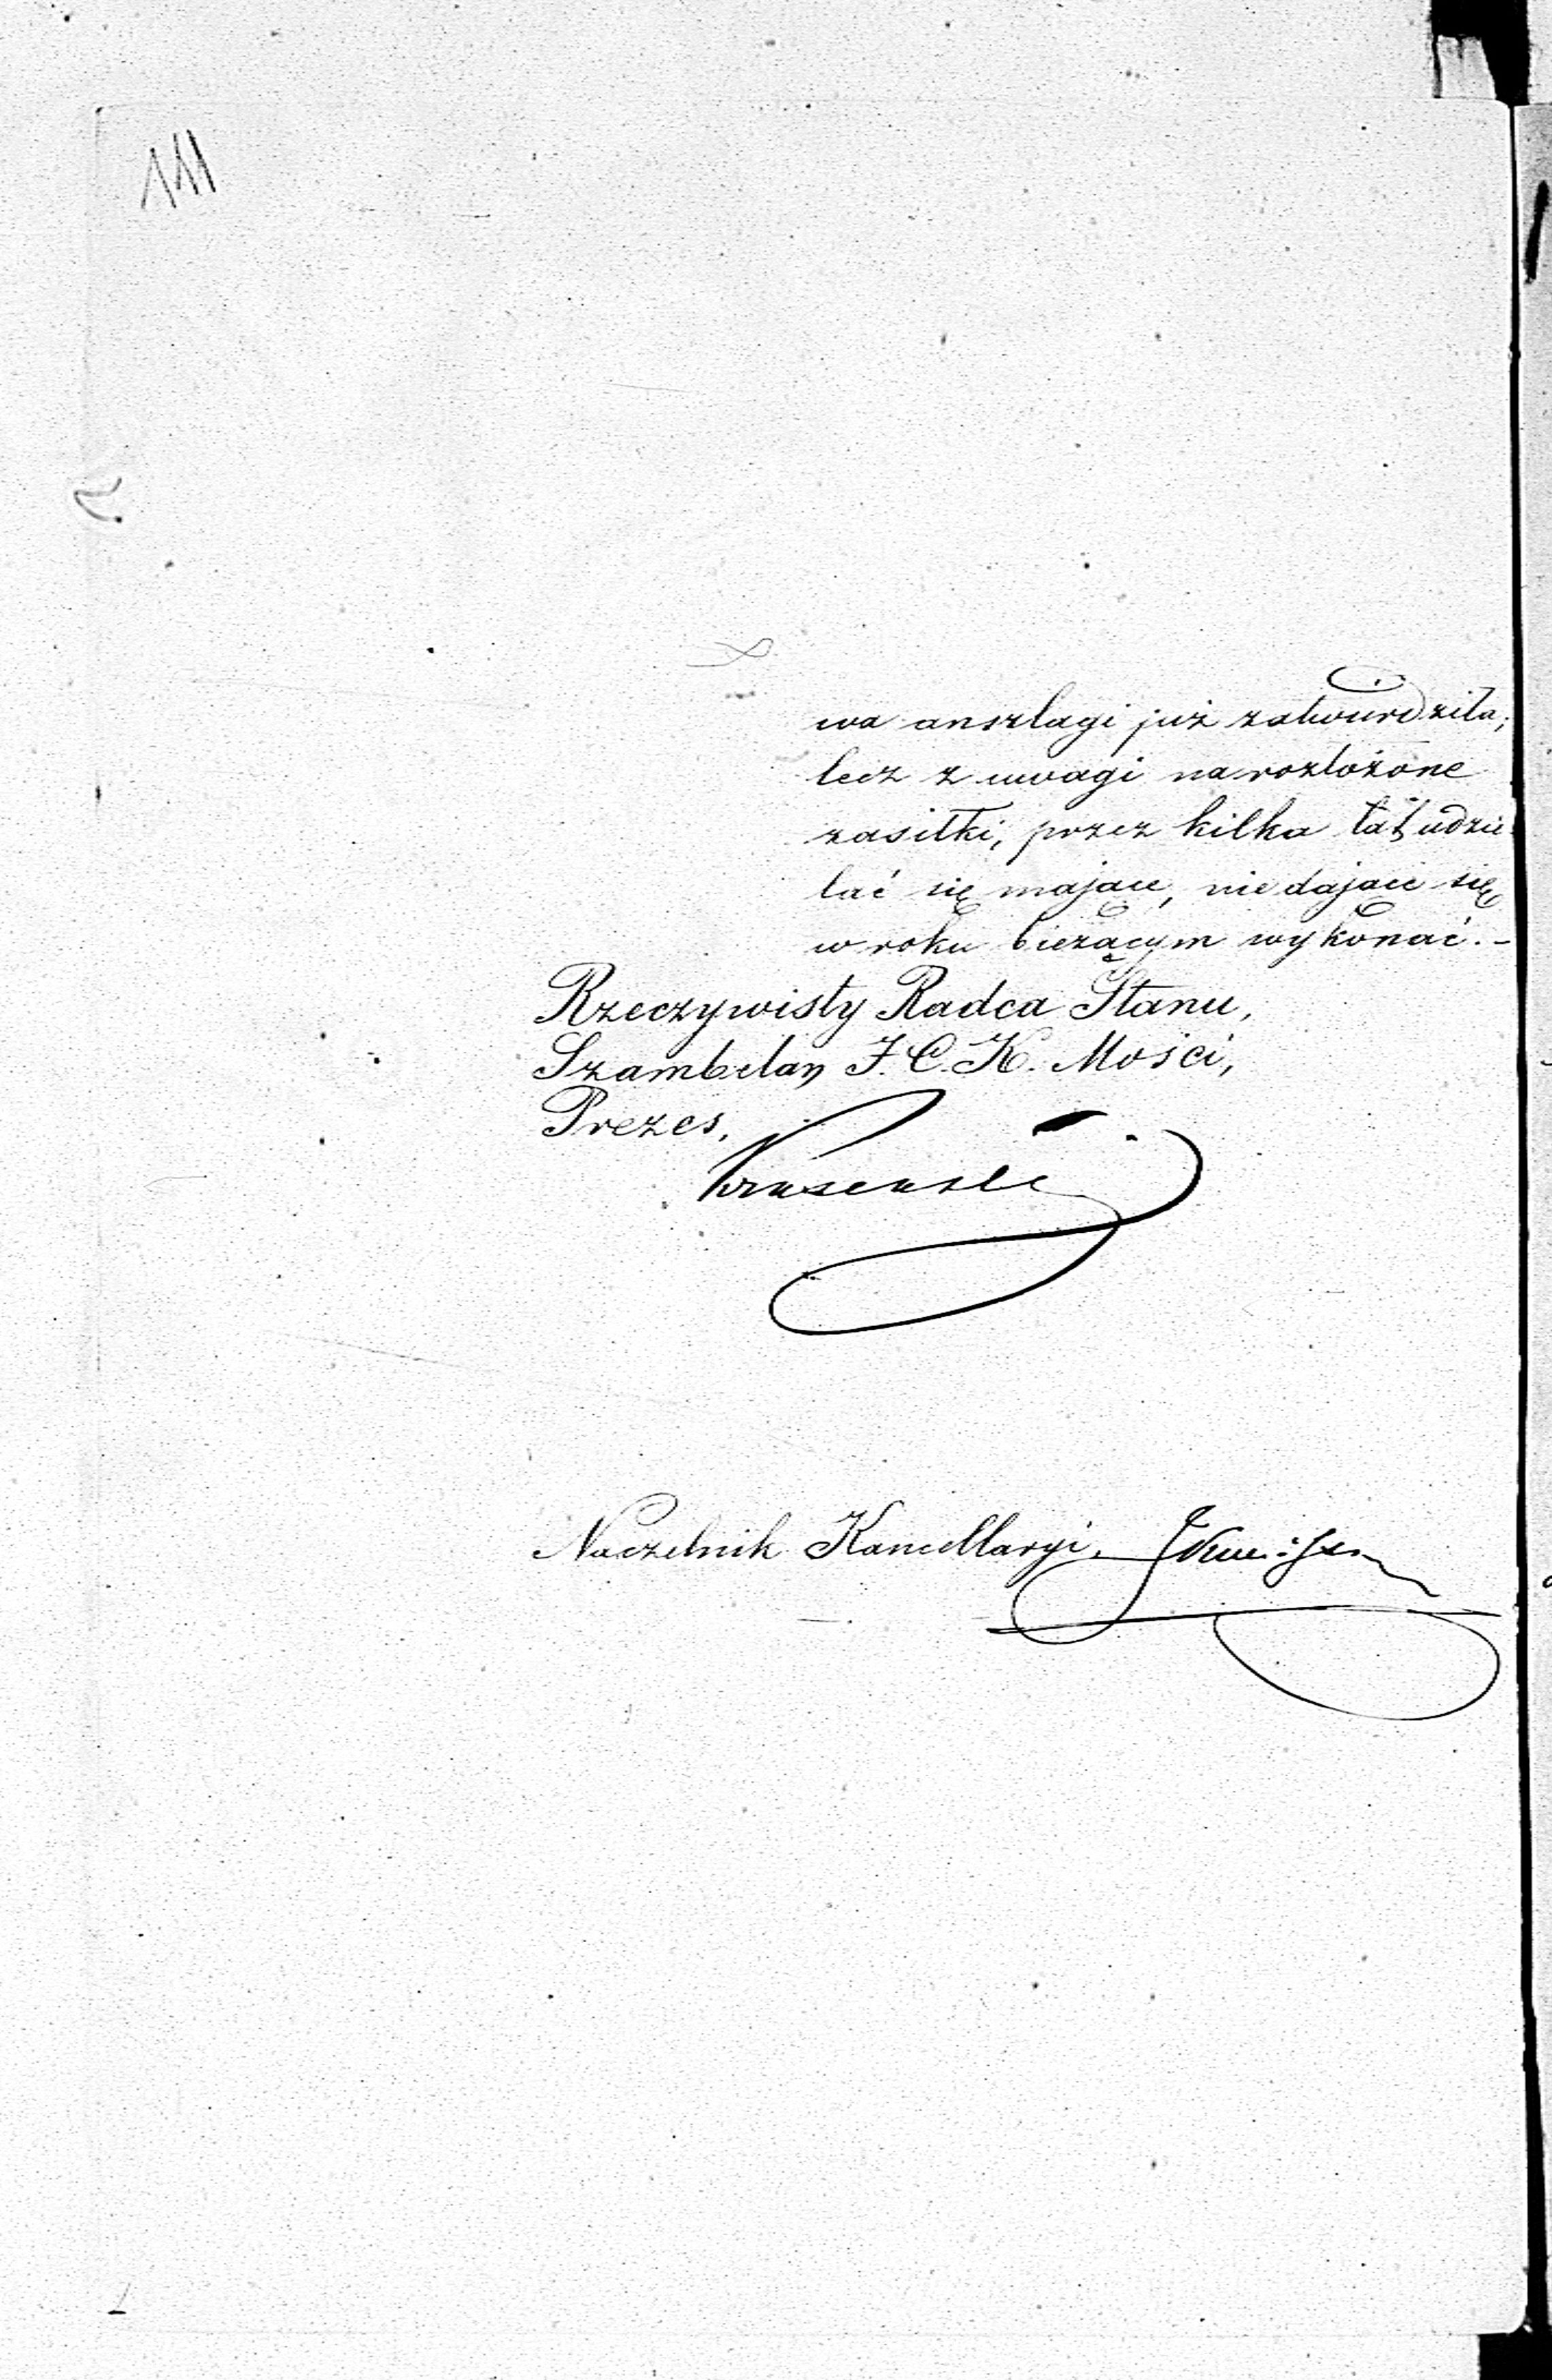 111
wa anszlagi już zatwierdziła,
lecz z uwagi na rozłożone
zasiłki, przez kilka lat udzie
lać się mające, nie dające się
w roku bieżącym wykonać. –
Rzeczywisty Radca Stanu,
Szambelan J. C. K. Mości,
Prezes,
Naczelnik Kancellaryi,